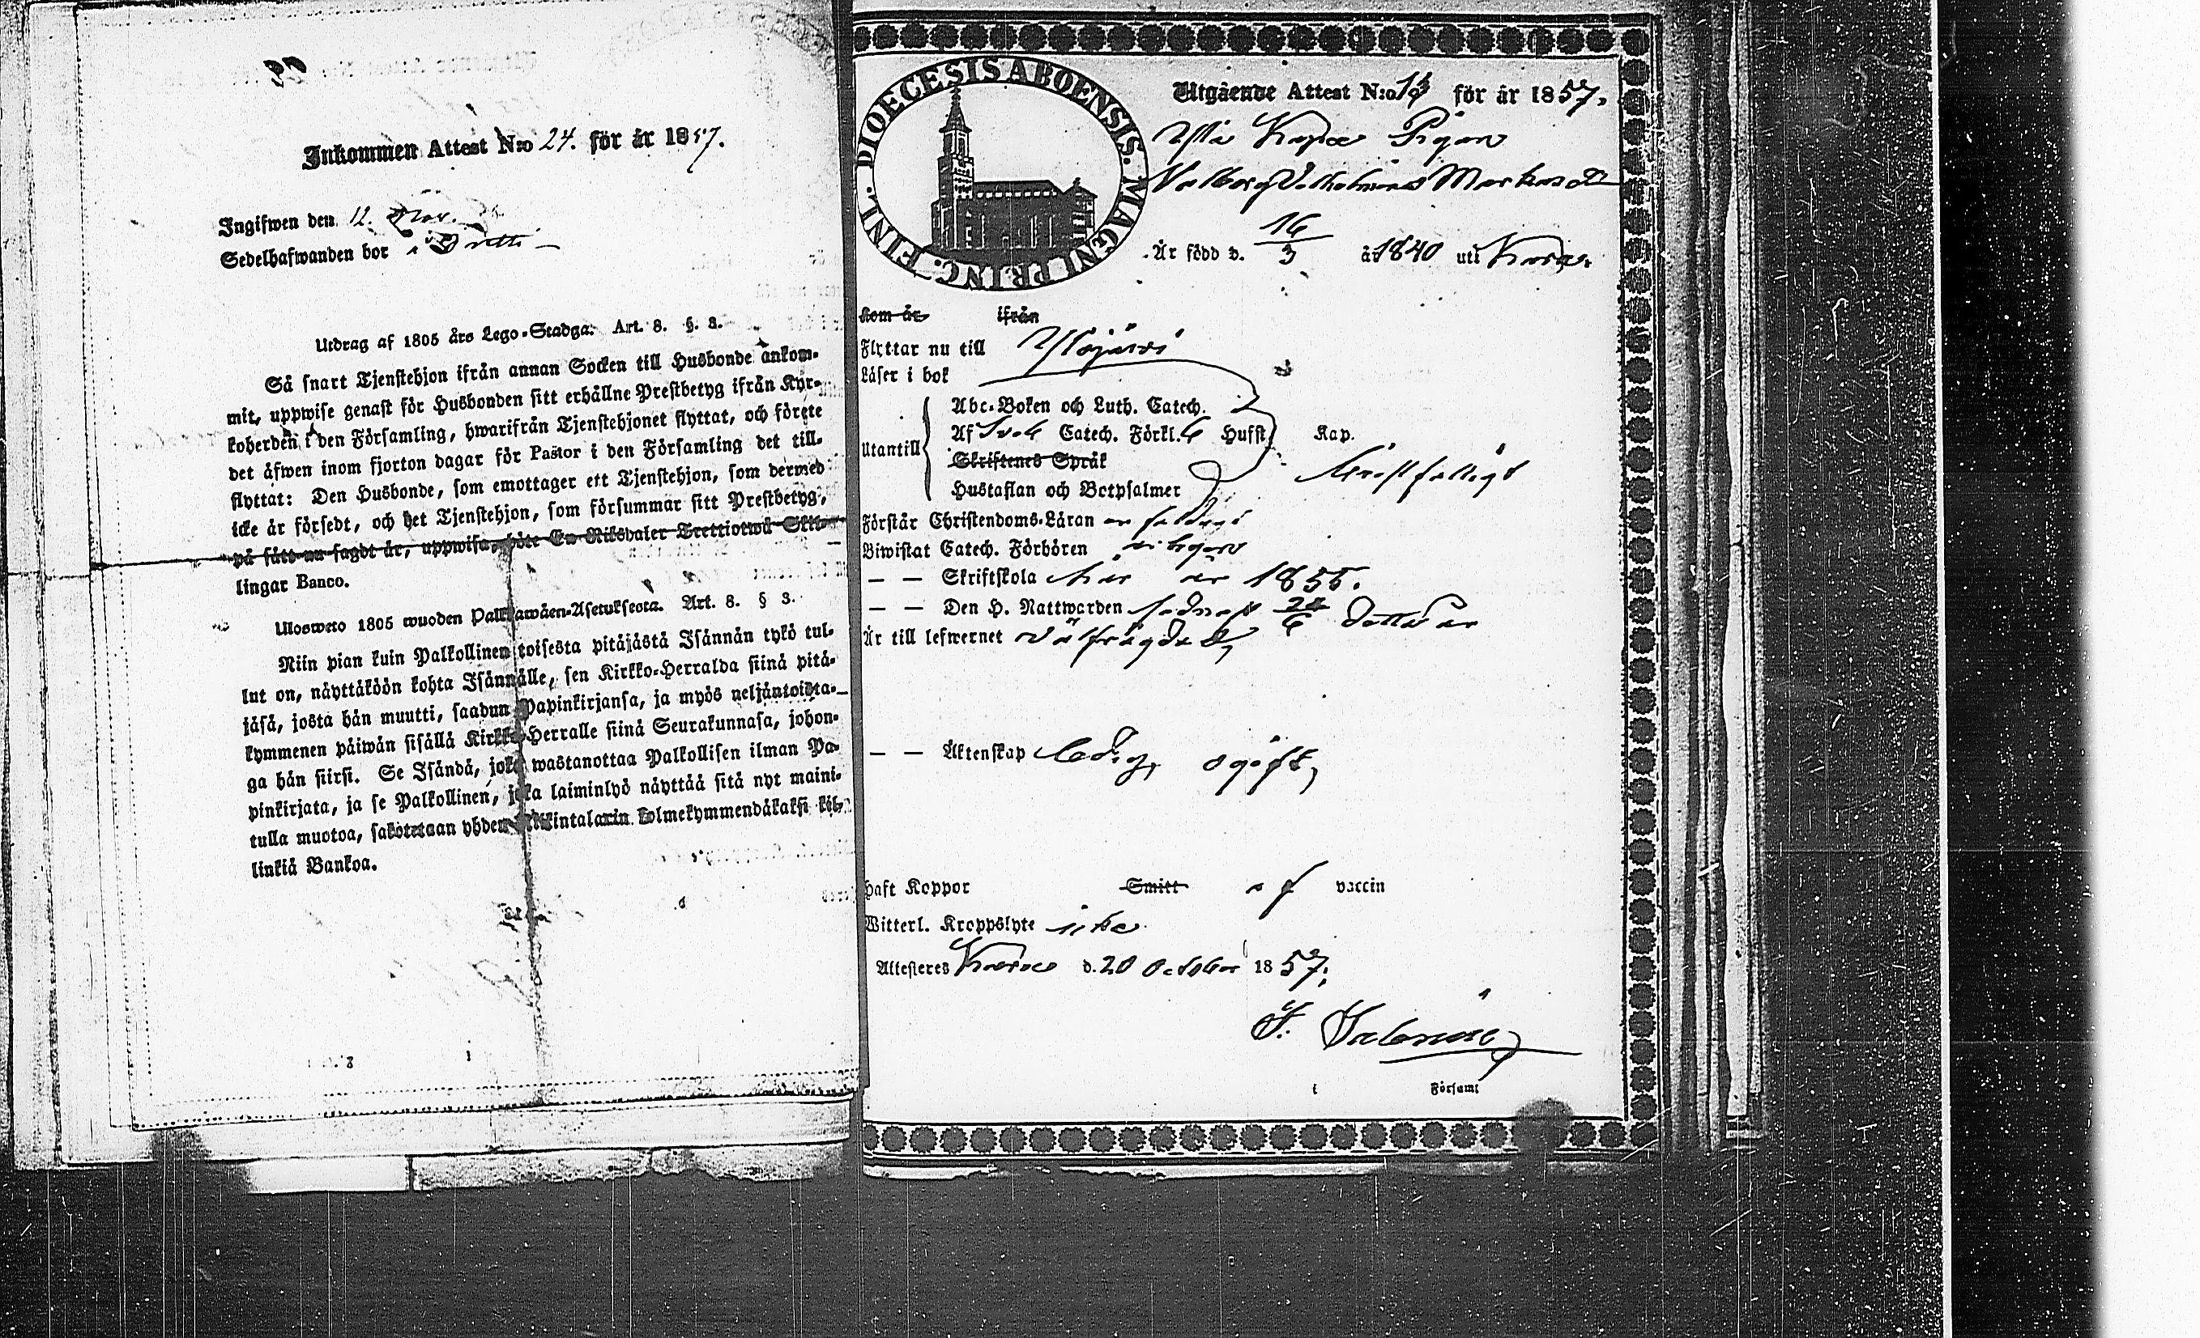 Inkommen Attest N:o 24. för år 1857.
Ingifwen den 12. Nov.
Sedelhafwanden bor i
Utdrag af 1805 års Lego-Stadga. Art. 8. §. 3.
Så snart Tjenstehjon ifrån annan Socken till Husbonde ankom-
mit, uppwise genast för Husbonden sitt erhållne Prestbetyg ifrån Kyr-
koherden i den Församling, hwarifrån Tjenstehjonet flyttat, och förete
det äfwen inom fjorton dagar för Pastor i den Församling det till-
flyttat: Den Husbonde, som emottager ett Tjenstehjon, som dermed
icke är försedt, och det Tjenstehjon, som försummar sitt Prestbetyg,
på sätt nu sagdt är, uppwisa, böte En Riksdaler Trettiotwå Skil-
lingar Banco.
Ulosweto 1805 wuoden Palkkawäen-Asetuksesta. Art. 8. § 3.
Niin pian kuin Palkollinen toisesta pitäjästä Isännän tykö tul-
lut on, näyttäköön kohta Isännälle, sen Kirkko-Herralda siinä pitä-
jäsä, josta hän muutti, saadun Papinkirjansa, ja myös neljäntoista-
kymmenen päiwän sisällä Kirkko-Herralle siinä Seurakunnasa, johon-
ga hän siirsi. Se Isändä, joka wastanottaa Palkollisen ilman Pa-
pinkirjata, ja se Palkollinen, joka laiminlyö näyttää sitä nyt maini-
tulla muotoa, sakotetaan yhden Riikintalarin kolmekymmendäkaksi kil-
linkiä Bankoa.
DIOECESIS ABOENSIS. MAGNI PRINC. FINL.
Utgående Attest N:o för år 1857.
Kapell Pigan
Valborg Vilhelmina
Är född d. 16/3 år 1840 uti
Kom år ifrån
Flyttar nu till Ylöjärvi
Läser i bok
Utantill
Abc-Boken och Luth. Catech.
Af Sveb. Catech. Förkl. 6 Hufst. Kap.
Skriftenes Språk
Hustaflan och Botpsalmer
Förstår Christendoms-Läran
Biwistat Catech. Förhören
— — Skriftskola här år 1855.
— — Den H. Nattwarden sednast detta år
Är till lefwernet välfrägdad,
— — Äktenskap ledig, ogift,
Haft Koppor Smitt vaccin
Witterl. Kroppslyte icke
Attesteres d. 20 October 1857.
i Församl